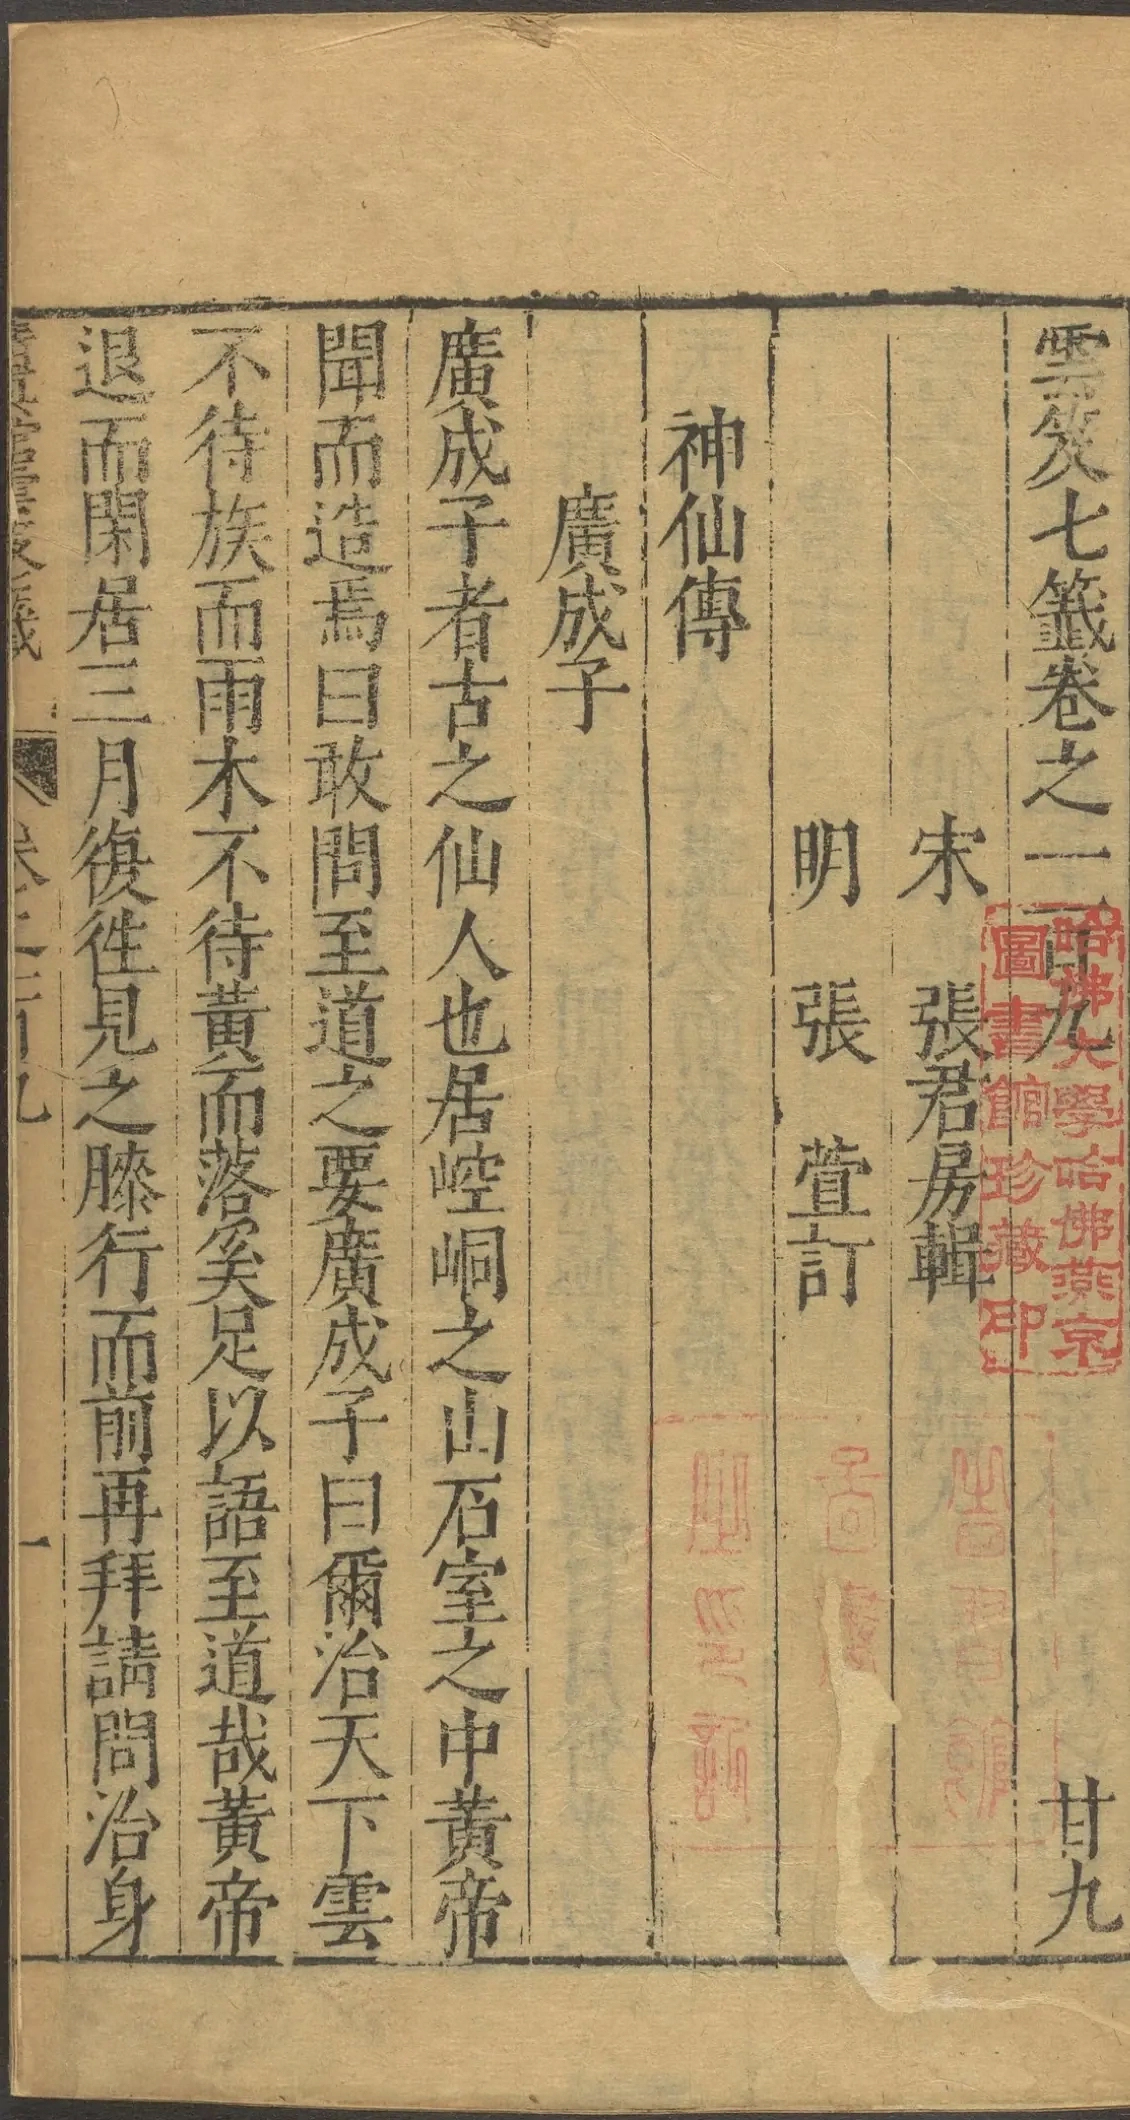 雲笈七籤卷之一百九 甘九
宋 張君房輯
明 張 萱訂
神仙傳
廣成子
廣成子者古之仙人也居崆峒之山石室之中黃帝
聞而造焉曰敢問至道之要廣成子曰爾治天下雲
不待族而雨木不待黃而落奚足以語至道哉黃帝
退而閑居三月復徃見之膝行而前再拜請問治身
卷之一百九 一
哈佛大學哈佛燕京
圖書館珍藏印